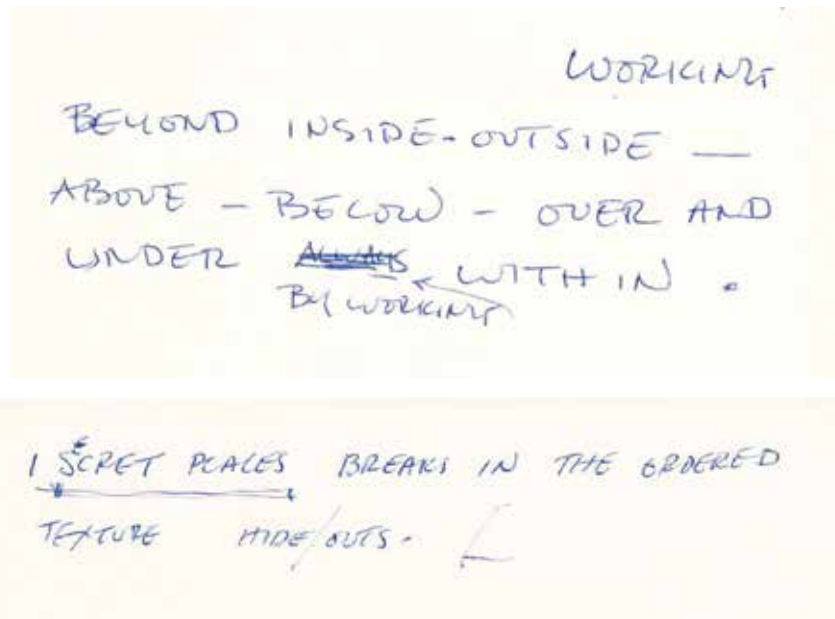 WORKING
BEYOND INSIDE-OUTSIDE —
ABOVE - BELOW - OVER AND
UNDER ALWAYS WITHIN.
BY WORKING
I SECRET PLACES BREAKS IN THE ORDERED
TEXTURE HIDE/OUTS.